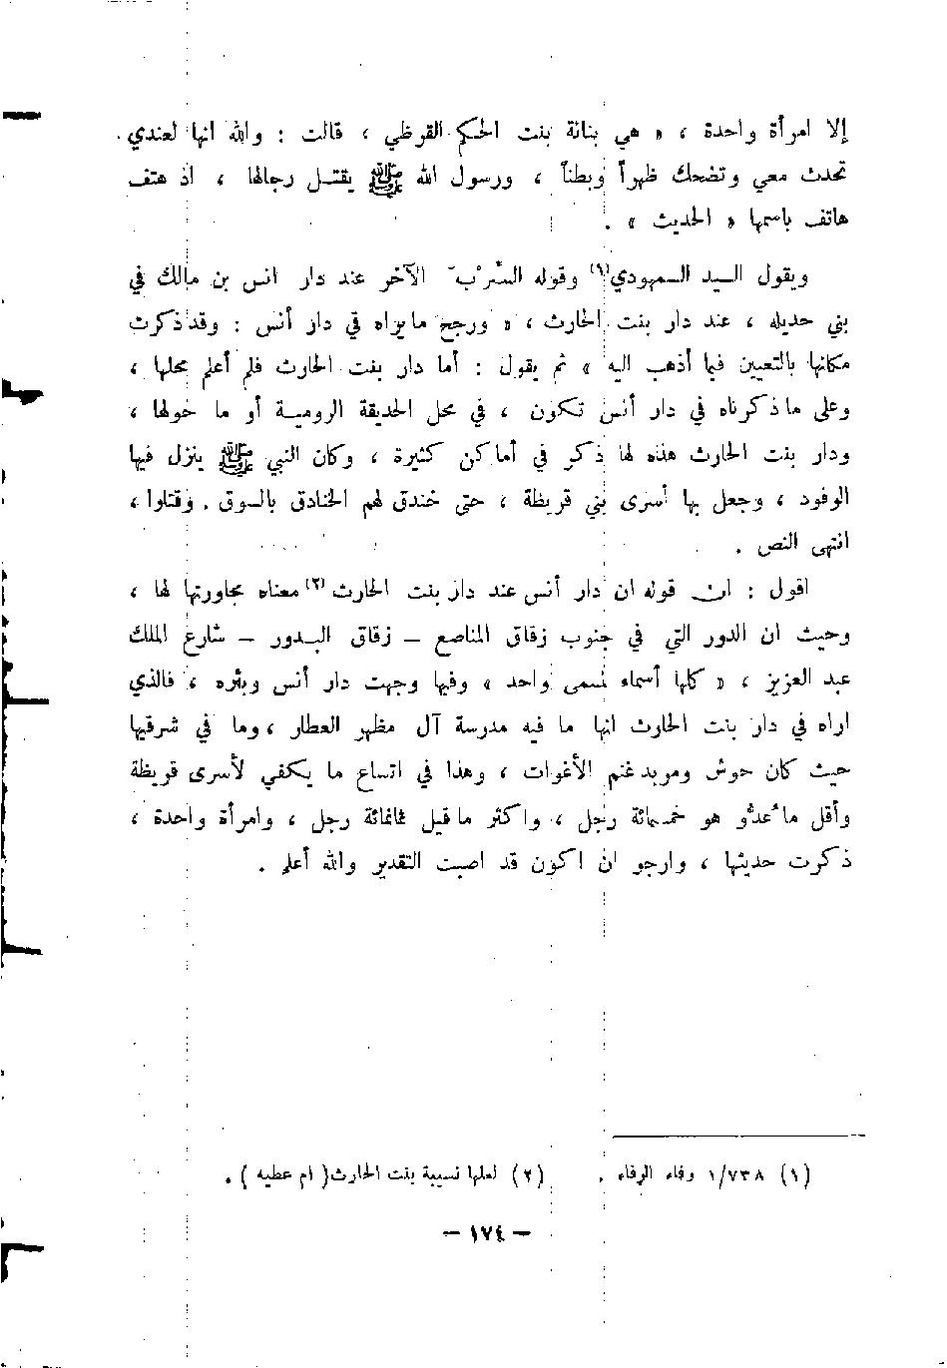 إلا امرأة واحدة ، « هي بنانة بنت الحكم القرظي ، قالت : والله انها لعندي
تحدث معي وتضحك ظهراً وبطناً ، ورسول الله ﷺ يقتل رجالها ، اذ هتف
هاتف باسمها « الحديث » .
ويقول السيد السمهودي(١) وقوله السَّرْب الآخر عند دار انس بن مالك في
بني حديله ، عند دار بنت الحارث ، « ورجح مايراه في دار أنس : وقد ذكرت
مكانها بالتعيين فيما أذهب اليه » ثم يقول : أما دار بنت الحارث فلم أعلم محلها ،
وعلى ماذكرناه في دار أنس تكون ، في محل الحديقة الرومية أو ما حولها ،
ودار بنت الحارث هذه لها ذكر في أماكن كثيرة ، وكان النبي ﷺ ينزل فيها
الوفود ، وجعل بها أسرى بني قريظة ، حتى خندق لهم الخنادق بالسوق . وقتلوا ،
انتهى النص .
اقول : ان قوله ان دار أنس عند دار بنت الحارث(٢) معناه مجاورتها لها ،
وحيث ان الدور التي في جنوب زقاق المناصع – زقاق البدور – شارع الملك
عبد العزيز ، « كلها أسماء لمسمى واحد » وفيها وجهت دار أنس وبئره ، فالذي
اراه في دار بنت الحارث انها ما فيه مدرسة آل مظهر العطار ، وما في شرقيها
حيث كان حوش ومربد غنم الأغوات ، وهذا في اتساع ما يكفي لأسرى قريظة
وأقل ما عدُّو هو خمسمائة رجل ، واكثر ماقيل ثمانمائة رجل ، وامرأة واحدة ،
ذكرت حديثها ، وارجو ان اكون قد اصبت التقدير والله أعلم .
(١) ١/٧٣٨ وفاء الوفاء .
(٢) لعلها نسيبة بنت الحارث ( ام عطيه ) .
– ١٧٤ –